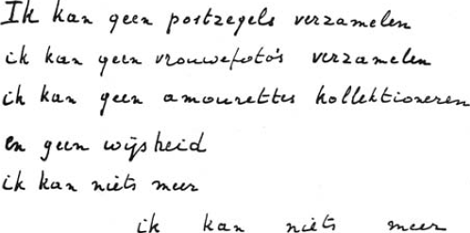 Ik kan geen postzegels verzamelen
ik kan geen vrouwefoto's verzamelen
ik kan geen amourettes kollektioneren
en geen wijsheid
ik kan niets meer
ik kan niets meer